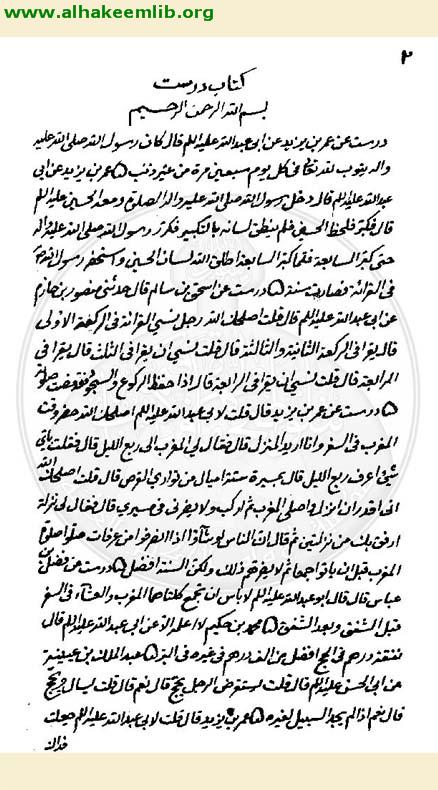 www.alhakeemlib.org
٢
كتاب درست
بسم الله الرحمن الرحيم
درست عن عمر بن يزيد عن ابى عبد الله عليه السلم قال كان رسول الله صلى الله عليه
واله يتوب لله تعالى فى كل يوم سبعين مرة من غير ذنب عمر بن يزيد عن ابى
عبد الله عليه السلم قال دخل رسول الله صلى الله عليه واله الصلوة ومعه الحسين عليه السلم
قال فكبر فلحظ الحسين فلم ينطق لسانه بالتكبير فكرر رسول الله صلى الله عليه واله
حتى كبر السابعة فلما كبر السابعة اطلق الله لسان الحسين واستمر رسول الله
فى القرائة فصارت سنة درست عن اسحق بن سالم قال حدثنى منصور بن حازم
عن ابى عبد الله عليه السلم قال قلت اصلحك الله رجل نسى القرائة فى الركعة الاولى
قال يقرا فى الركعة الثانية والثالثة قال قلت نسى ان يقرا فى الثلث قال يقرا فى
الرابعة قال قلت نسى ان يقرا فى الرابعة قال اذا حفظ الركوع والسجود فقد مضت صلوته
درست عن عمر بن يزيد قال قلت لابى عبد الله عليه السلم اصلحك الله حضر وقت
المغرب فى السفر وانا اريد المنزل قال فقال لى المغرب الى ربع الليل قال فقلت باى
شئ اعرف ربع الليل قال بمسيرة ستة اميال من توارى القرص قال قلت اصلحك الله
انى اقدر ان انزل واصلى المغرب ثم اركب ولا يضرنى فى مسيرى قال فقال لى نزلة
ارفق بك من نزلتين ثم قال ان الناس لو شاؤا اذا انصرفوا من عرفات صلوا
المغرب قبل ان ياتوا جمعا ثم لا يضرهم ذلك ولكن السنة افضل درست عن فضل بن
عباس قال قال ابو عبد الله عليه السلم لا باس ان تجمع كلتاهما المغرب والعشاء فى السفر
قبل الشفق وبعد الشفق محمد بن حكيم لا اعلم الا عن ابى عبد الله عليه السلم قال
نفقة درهم فى الحج افضل من الف درهم فى غيره فى البر عبد الملك بن
عن ابى الحسن عليه السلم قال قلت يستقرض الرجل يحج قال نعم قال قلت يسال ويحج
قال نعم اذا لم يجد السبيل لغيره عمر بن يزيد قال قلت لابى عبد الله عليه السلم جعلت
فداك